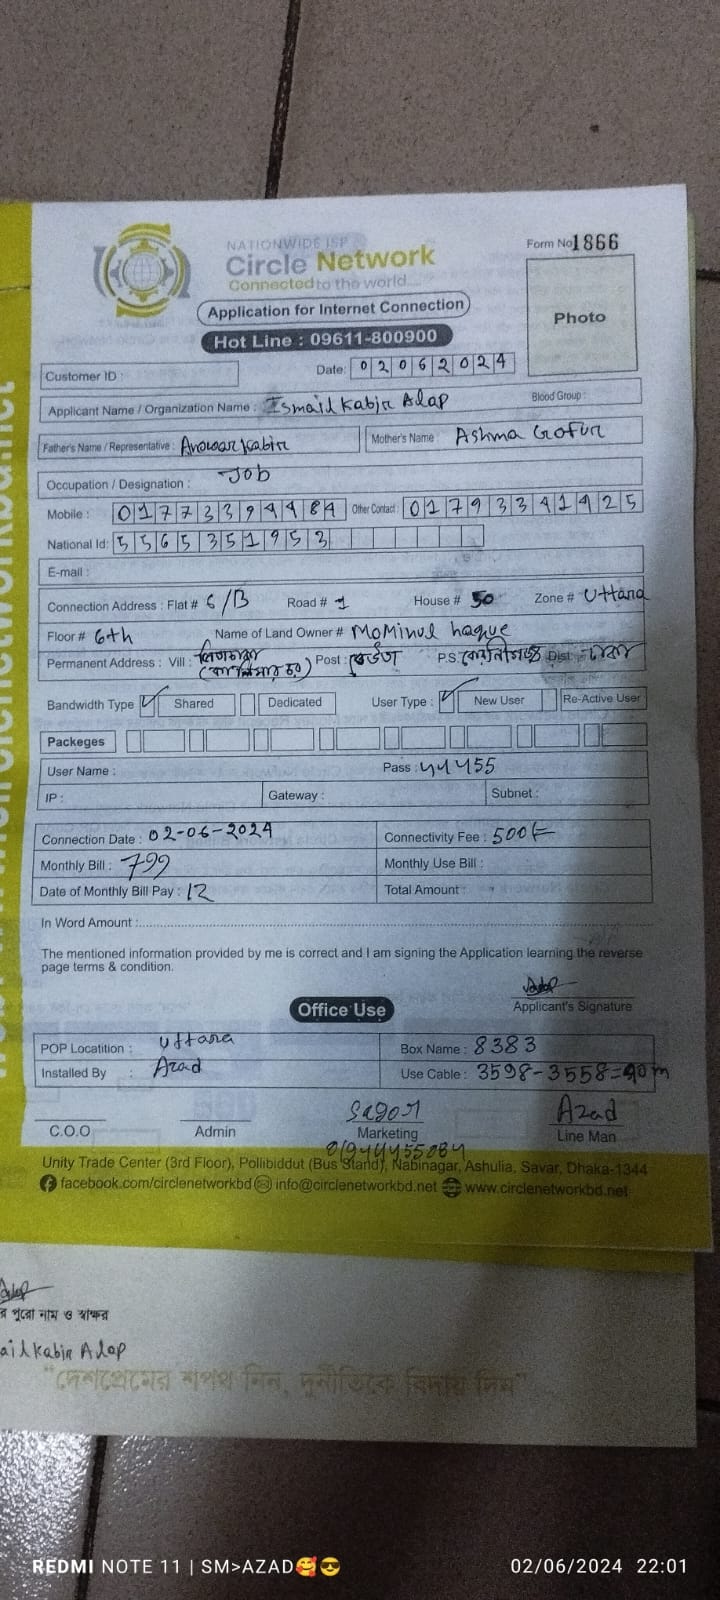 NATIONWIDE ISP
Circle Network
Connected to the world....
Form No 1866
Application for Internet Connection
Photo
Hot Line : 09611-800900
Customer ID :
Date: 02062024
Applicant Name / Organization Name : Ismail Kabir Adap
Blood Group :
Father's Name / Representative : Anowar Kabir
Mother's Name : Ashma Gofur
Occupation / Designation : Job
Mobile : 01773394484 Other Contact : 01793341425
National Id: 5565351953
E-mail :
Connection Address : Flat # 6/B Road # 1 House # 50 Zone # Uttara
Floor # 6th Name of Land Owner # Mominul haque
Permanent Address : Vill : Post : PS: Dist : ঢাকা
Bandwidth Type Shared Dedicated User Type : New User Re-Active User
Packeges
User Name : Pass : 44455
IP : Gateway : Subnet :
Connection Date : 02-06-2024 Connectivity Fee : 500/=
Monthly Bill : 799 Monthly Use Bill :
Date of Monthly Bill Pay : 12 Total Amount :
In Word Amount :
The mentioned information provided by me is correct and I am signing the Application learning the reverse
page terms & condition.
Applicant's Signature
Office Use
POP Locatition : Uttara Box Name : 8383
Installed By : Azad Use Cable : 3598-3558=40m
Sagor Azad
C.O.O Admin Marketing Line Man
01944455084
Unity Trade Center (3rd Floor), Pollibiddut (Bus Stand), Nabinagar, Ashulia, Savar, Dhaka-1344
facebook.com/circlenetworkbd info@circlenetworkbd.net www.circlenetworkbd.net
র পুরো নাম ও স্বাক্ষর
ail Kabir Adap
"দেশপ্রেমের শপথ নিন, দুর্নীতিকে বিদায় দিন"
REDMI NOTE 11 | SM>AZAD🥰😎 02/06/2024 22:01